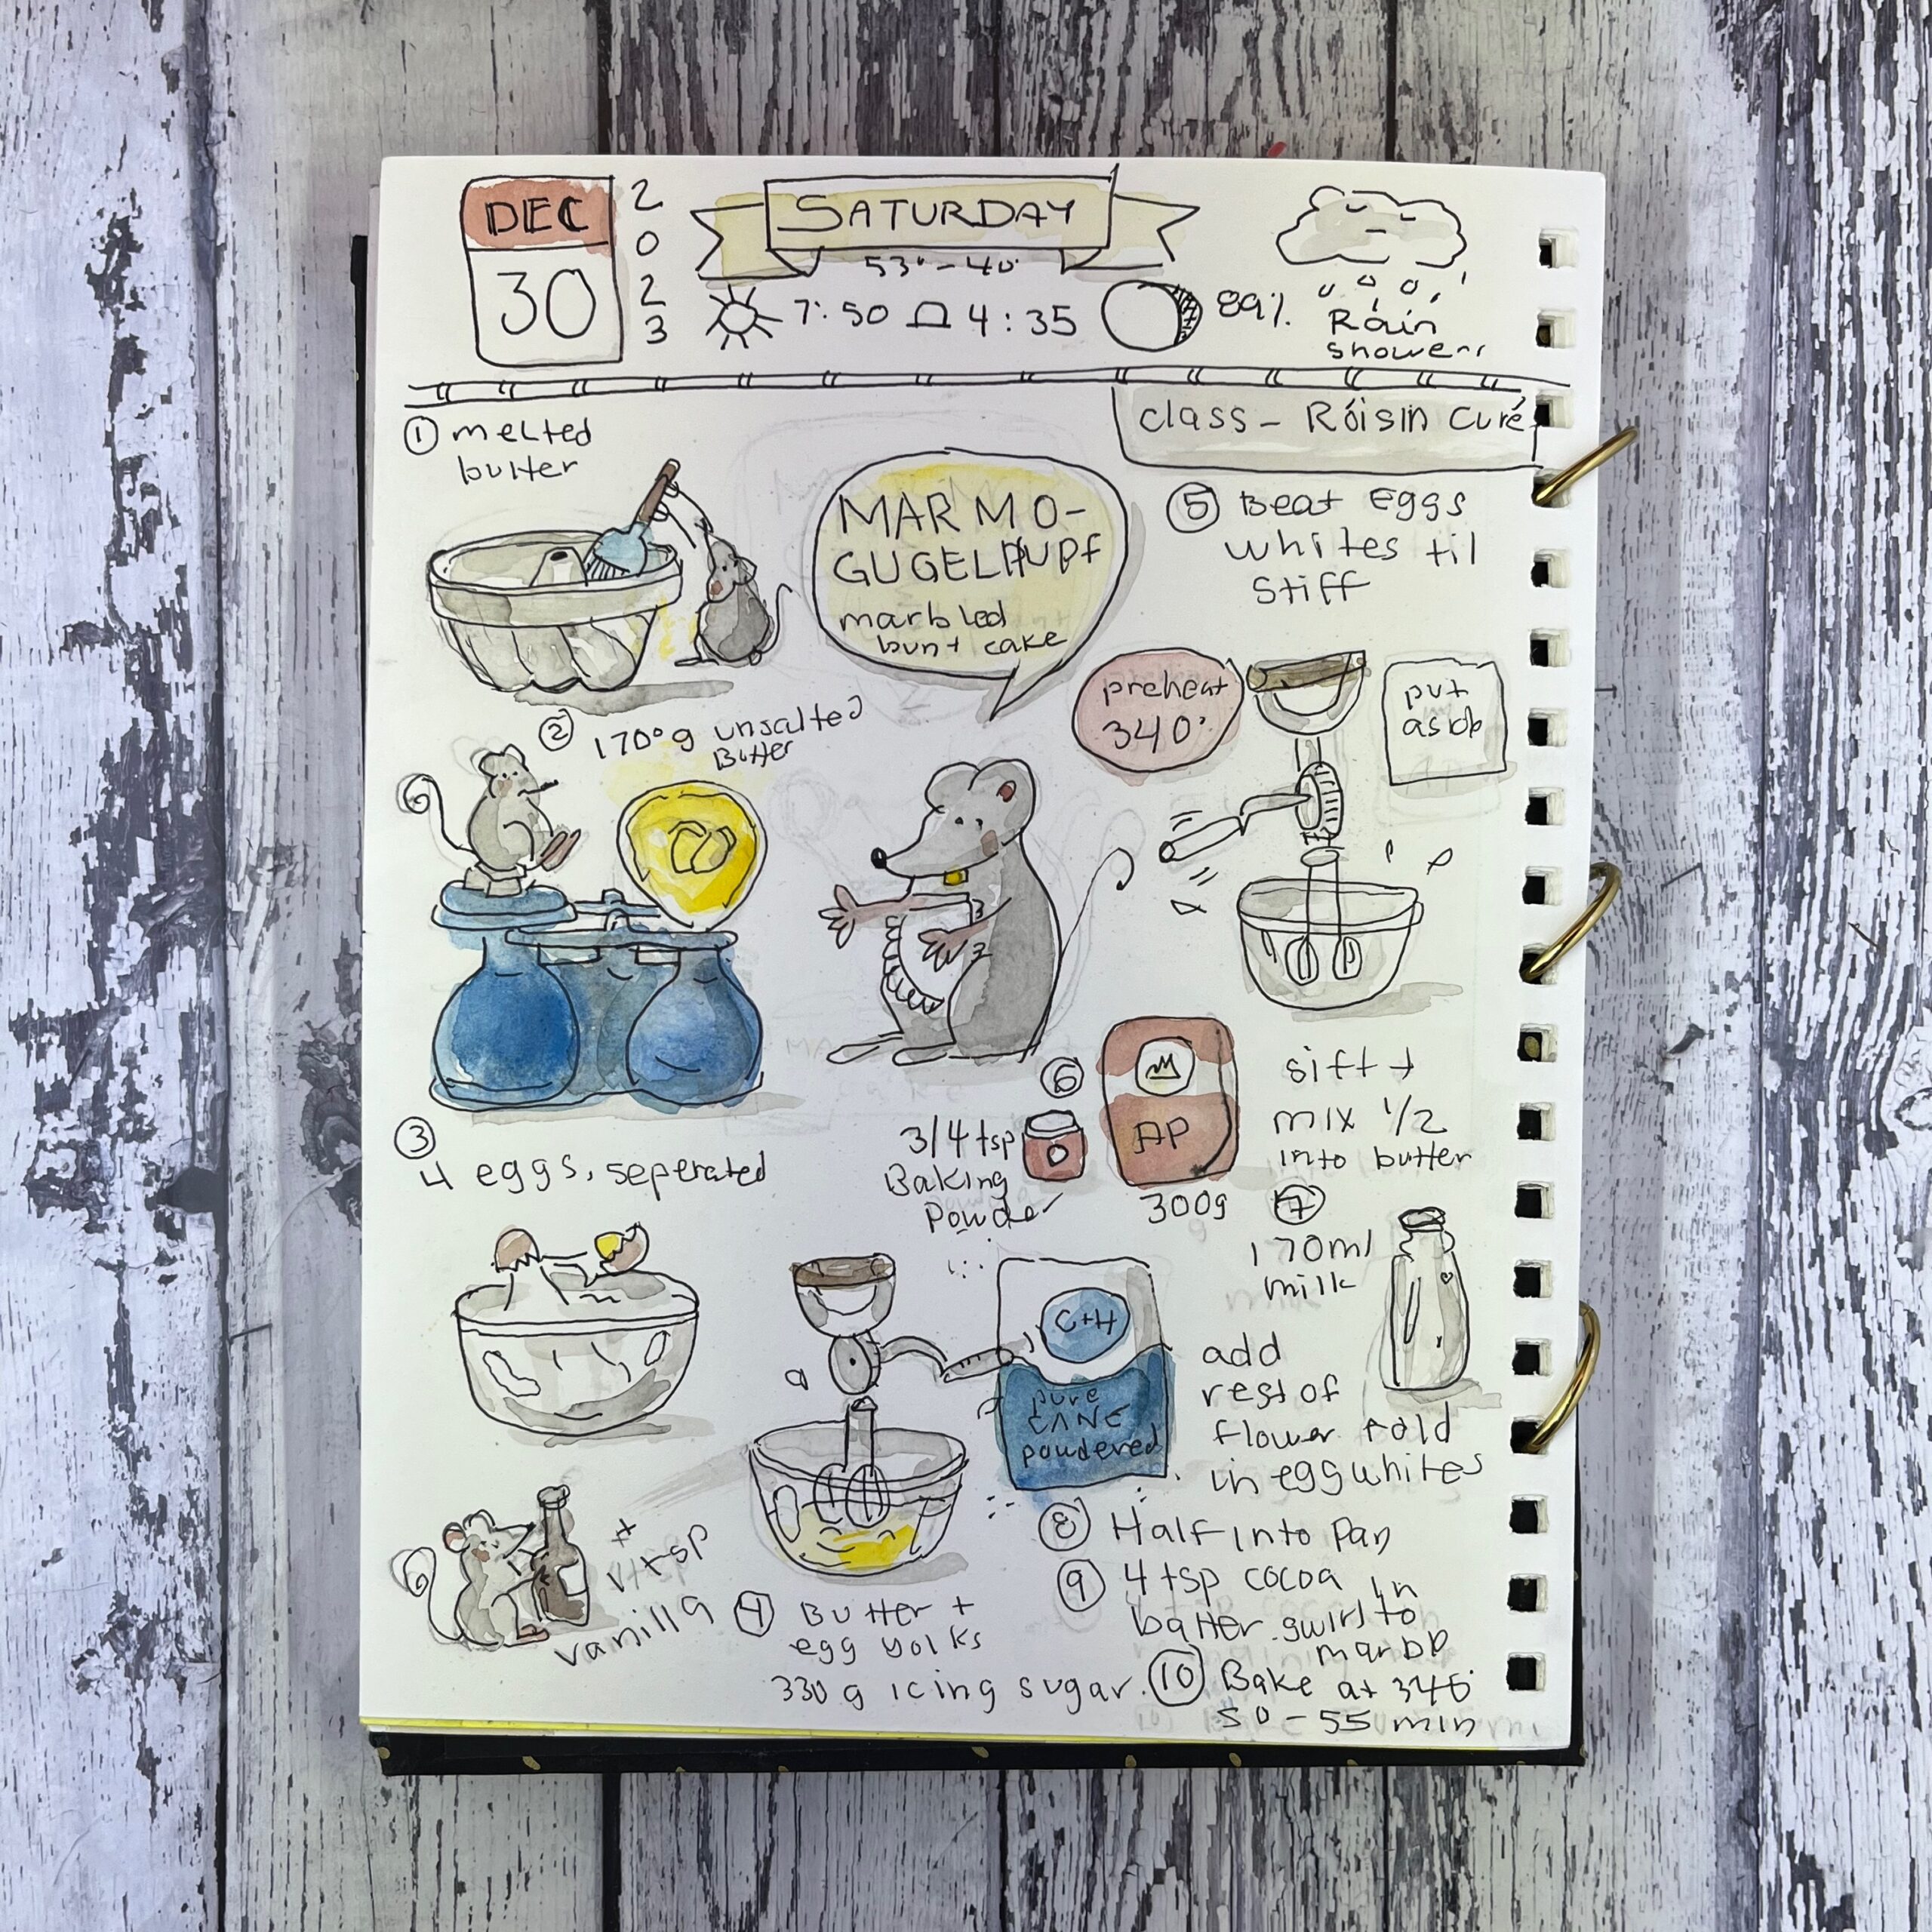 DEC
30
2023
SATURDAY
53° - 40°
7:50
4:35
89%
Rain
showers
class - Róisín Curé
① melted
butter
MARMO-
GUGELHUPF
marbled
bunt cake
② 170°g unsalted
Butter
③
4 eggs, seperated
+
1 tsp
vanilla
④ Butter +
egg yolks
330 g icing sugar.
C+H
pure
CANE
powdered
⑤ Beat eggs
whites til
stiff
preheat
340°
put
aside
⑥
3/4 tsp
Baking
Powder
AP
300g
sift +
mix 1/2
into butter
⑦
170ml
milk
add
rest of
flower fold
in egg whites
⑧ Half into Pan
⑨ 4 tsp cocoa in
batter. swirl to
marble
⑩ Bake at 340°
50 - 55 min